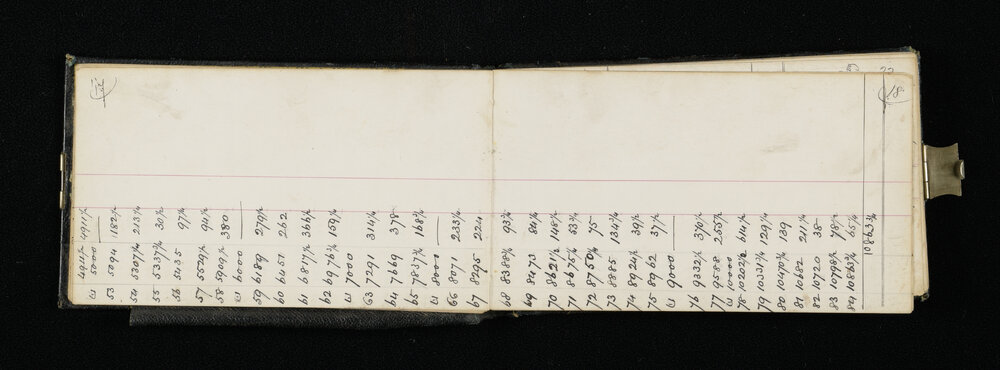 18.
4911½ 4911½
5000
53 5094 182½
54 5307¼ 213¼
55 5337¾ 30½
56 5435 97¼
57 5529½ 94½
58 5909½ 380
6000
59 6189 279½
60 6451 262
61 6817¾ 366¾
62 6976¾
7000
63 7291 314¼
64 7669 378
65 7837½ 168½
8000
66 8071 233½
67 8295 224
68 8388½ 93½
69 8473 84½
70 8621½ 148½
71 8675¼ 53¾
72 8750¼ 75
73 8885 134¾
74 8924½ 39½
75 8962 37½
9000
76 9332½ 370½
77 9588 255½
10000
78 10202½ 614½
79 10331½ 129¼
80 10470½ 139
81 10682 211½
82 10720 38
83 10798½ 78½
84 10863¾ 65¼
10863¾